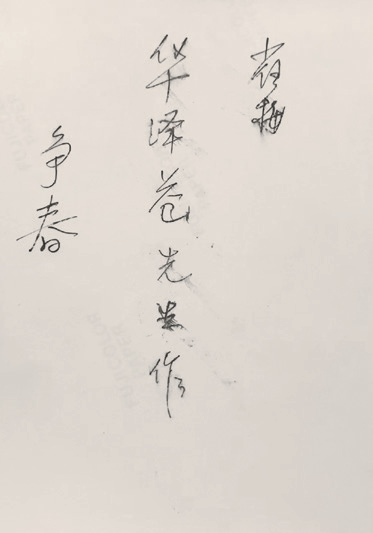 雀梅
华泽苍先生作
争春